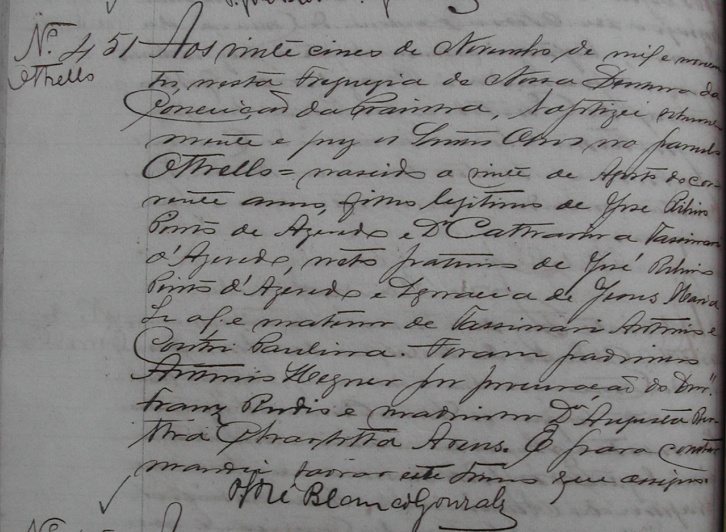 Nº 451 Aos vinte cinco de Novembro de mil e noven
Othello tres, nesta Freguezia de Nossa Senhora da
Conceição da , baptizei solemne
mente e puz os Santos Oleos no parvulo
Othrello = nascido a vinte de Agosto do cor
rente anno, filho legitimo de José Ribeiro
Pinto de Azevedo e Dª Catharina Vassimari
d'Azevedo, neto paterno de José Ribeiro
Pinto d'Azevedo e Ignacia de Jesus Maria
e materno de Vassimari Antonio e
Contri Paulina. Foram padrinhos
Antonio Wegner por procuração do Dor.
Franz e madrinha Dª Augusta
Charlotta Arens. E para constar
mandei lavrar este termo que assigno.
José Blanco Gonzalz